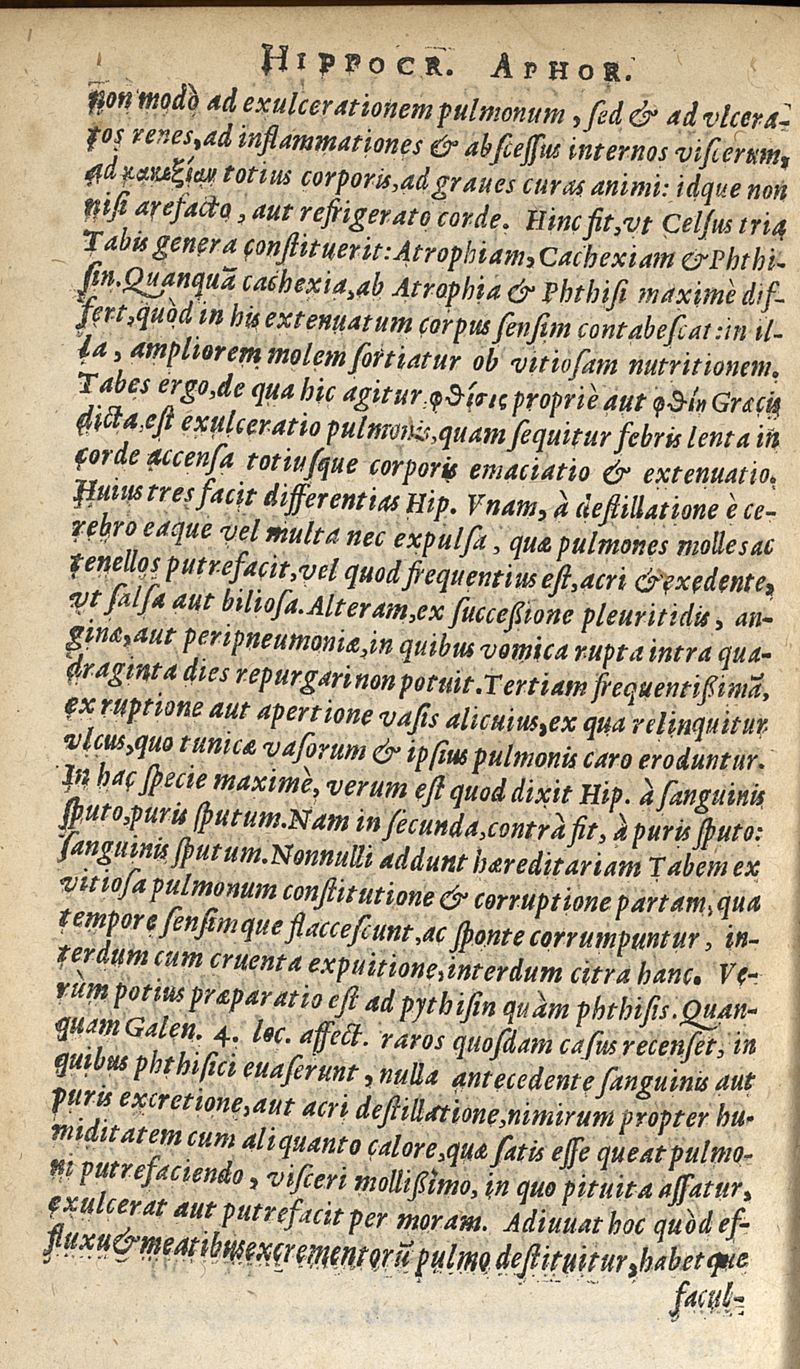 HIPPOCR. APHOR.
non modò ad exulcerationem pulmonum, ſed & ad vlcera-
tos renes, ad inflammationes & abſceſſus internos viſcerum,
ad καχεξίαν totius corporis, ad graues curas animi: idque non
niſi arefacto, aut refrigerato corde. Hinc fit, vt Celſus tria
Tabis genera conſtituerit: Atrophiam, Cachexiam & Phthi-
ſin. Quanquā cachexia, ab Atrophia & Phthiſi maximè dif-
fert, quòd in his extenuatum corpus ſenſim contabeſcat: in il-
la, ampliorem molem ſortiatur ob vitioſam nutritionem.
Tabes ergo, de qua hic agitur, φθίσις propriè aut φθίν Græcis
dicta, eſt exulceratio pulmonis, quam ſequitur febris lenta in
corde accenſa totiuſque corporis emaciatio & extenuatio.
Huius tres facit differentias Hip. Vnam, à deſtillatione è ce-
rebro eaque vel multa nec expulſa, quæ pulmones molles ac
tenellos putrefacit, vel quod frequentius eſt, acri & exedente,
vt ſalſa aut bilioſa. Alteram, ex ſucceßione pleuritidis, an-
ginæ, aut peripneumoniæ, in quibus vomica rupta intra qua-
draginta dies repurgari non potuit. Tertiam frequentißimā,
ex ruptione aut apertione vaſis alicuius, ex qua relinquitur
vlcus, quo tunicæ vaſorum & ipſius pulmonis caro eroduntur.
In hac ſpecie maximè, verum eſt quod dixit Hip. à ſanguinis
ſputo, puris ſputum. Nam in ſecunda, contrà fit, à puris ſputo:
ſanguinis ſputum. Nonnulli addunt hæreditariam Tabem ex
vitioſa pulmonum conſtitutione & corruptione partam, qua
tempore ſenſimque flacceſcunt, ac ſponte corrumpuntur, in-
terdum cum cruenta expuitione, interdum citra hanc. Ve-
rùm potius præparatio eſt ad pythiſin quàm phthiſis. Quan-
quam Galen. 4. loc. affect. raros quoſdam caſus recenſet, in
quibus phthiſici euaſerunt, nulla antecedente ſanguinis aut
puris excretione, aut acri deſtillatione, nimirum propter hu-
miditatem cum aliquanto calore, quæ ſatis eſſe queat pulmo-
ni putrefaciendo, viſceri mollißimo, in quo pituita aſſatur,
exulcerat aut putrefacit per moram. Adiuuat hoc quòd ef-
fluxu & meatibus excrementorū pulmo deſtituitur, habetque
facul-